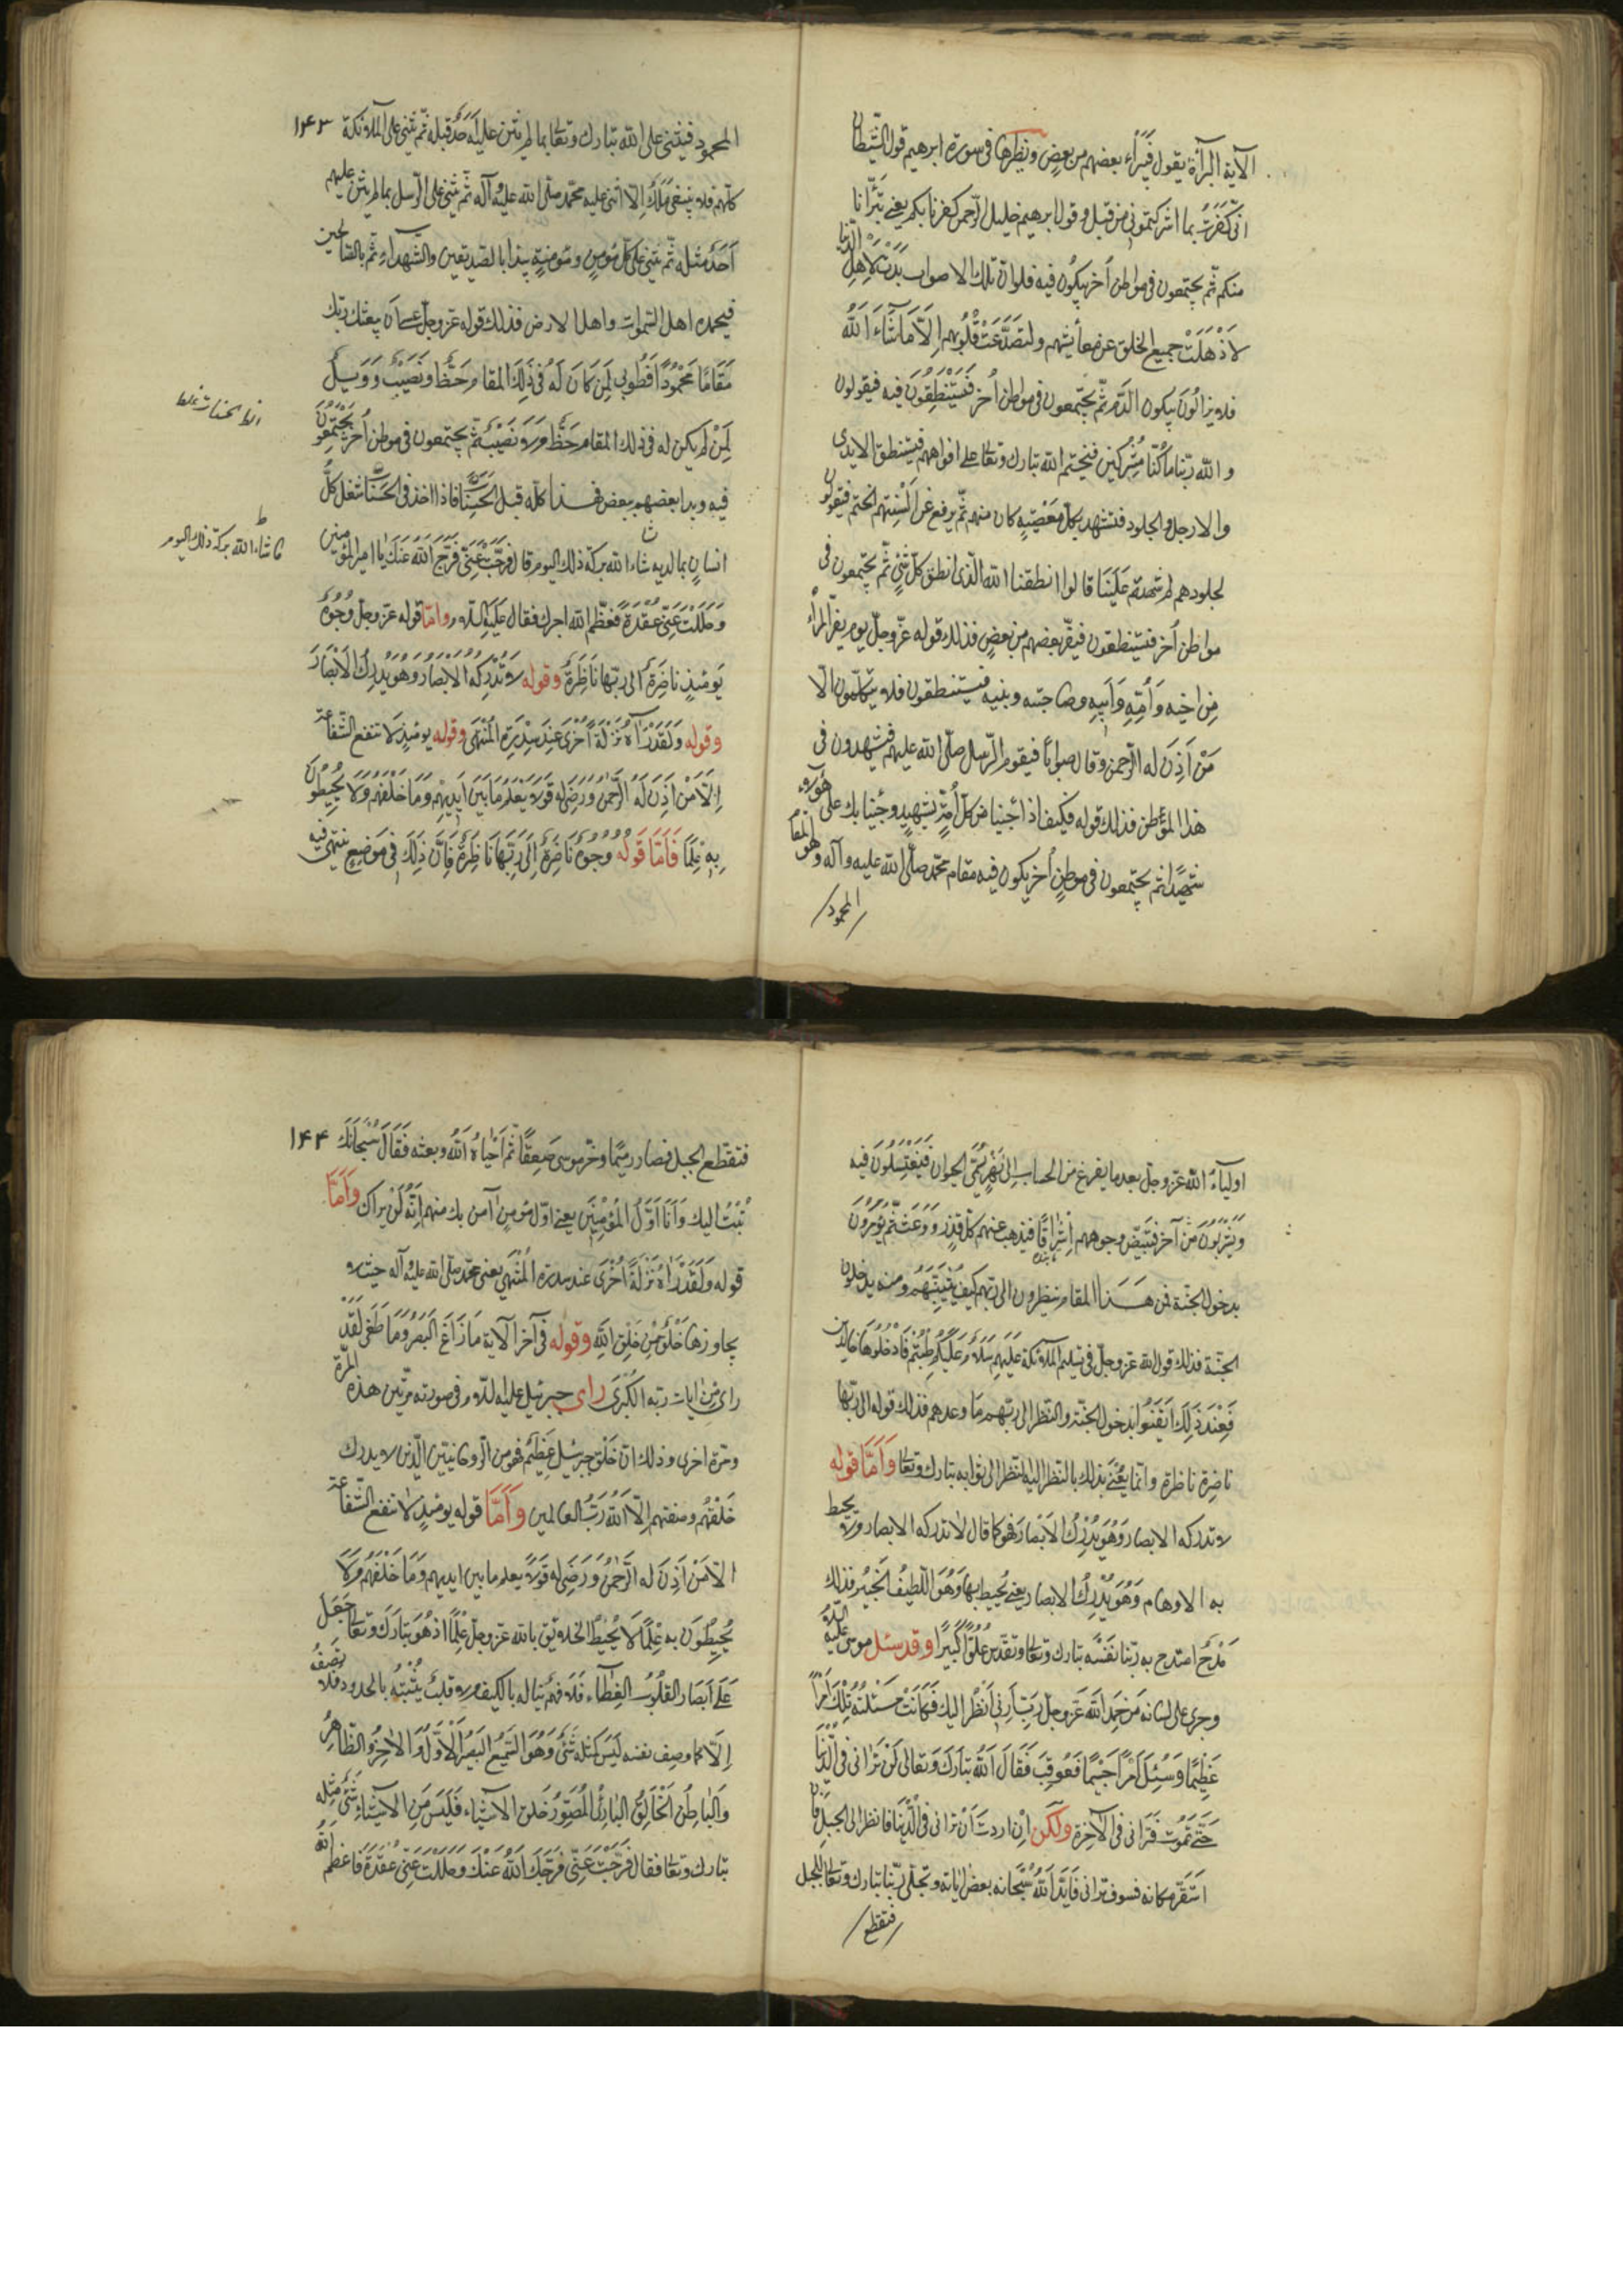 الآية البرآءة يقول فيبرأ بعضهم من بعض ونظيرها في سورة ابرهيم قول الشيطان
انى كفرت بما اشركتمونى من قبل وقول ابرهيم خليل الرحمن كفرنا بكم يعنى تبرأنا
منكم ثم يجتمعون فى مواطن أخر يبكون فيه فلو ان تلك الاصوات بدت لاهل الدنيا
لاذهلت جميع الخلق عن معايشهم ولتصدعت قلوبهم الا ما شاء الله
فلا يزالون يبكون الدم ثم يجتمعون فى مواطن أخر فيستنطقون فيه فيقولون
والله ربنا ما كنا مشركين فيختم الله تبارك وتعالى على افواههم فيستنطق الايدى
والارجل والجلود فتشهد بكل معصية كان منهم ثم يرفع عن السنتهم الختم فيقولون
لجلودهم لم شهدتم علينا قالوا انطقنا الله الذى انطق كل شئ ثم يجتمعون فى
مواطن أخر فيستنطقون فيفر بعضهم من بعض فذلك قوله عز وجل يوم يفر المرء
من اخيه وأمه وأبيه وصاحبته وبنيه فيستنطقون فلا يتكلمون الا
من أذن له الرحمن وقال صوابا فيقوم الرسل صلى الله عليهم فيشهدون فى
هذا المواطن فذلك قوله فكيف اذا جئنا من كل أمة بشهيد وجئنا بك على هؤلاء
شهيدا ثم يجتمعون فى موطن أخر يكون فيه مقام محمد صلى الله عليه وآله وهو المقام
المحمود
١٤٣
المحمود فيثنى على الله تبارك وتعالى بما لم يثن عليه أحد قبله ثم يثنى على الملائكة
كلهم فلا يبقى ملك الا اثنى عليه محمد صلى الله عليه وآله ثم يثنى على الرسل بما لم يثن عليهم
أحد مثله ثم يثنى على كل مؤمن ومؤمنة يبدأ بالصديقين والشهداء ثم بالصالحين
فيحمده اهل السموات واهل الارض فذلك قوله عز وجل عسى ان يبعثك ربك
مقاما محمودا فطوبى لمن كان له فى ذلك المقام حظ ونصيب وويل
لمن لم يكن له فى ذلك المقام حظ ولا نصيب ثم يجتمعون فى موطن أخر يجتمعون
فيه ويدا بعضهم ببعض فهذا كله قبل الحساب فاذا اخذ فى الحساب شغل كل
انسان بما لديه شاء الله بركة ذلك اليوم قال فرجت عنى فرج الله عنك يا امير المؤمنين
وحللت عنى عقدة فعظم الله اجرك فقال عليه السلام واما قوله عز وجل وجوه
يومئذ ناضرة الى ربها ناظرة وقوله لا تدركه الابصار وهو يدرك الابصار
وقوله ولقد رآه نزلة أخرى عند سدرة المنتهى وقوله يومئذ لا تنفع الشفاعة
الا من أذن له الرحمن ورضى له قولا يعلم ما بين ايديهم وما خلفهم ولا يحيطون
به علما فاما قوله وجوه ناضرة الى ربها ناظرة فان ذلك فى موضع ينتهى فيه
شاء الله بركة ذلك اليوم
اولياء الله عز وجل بعد ما يفرغ من الحساب الى نهر يسمى الحيوان فيغتسلون فيه
ويشربون من آخر فتبيض وجوههم اشراقا فيذهب عنهم كل قذر ووعث ثم يؤمرون
بدخول الجنة فمن هذا المقام ينظرون الى ربهم كيف يثيبهم ومنه يدخلون
الجنة فذلك قول الله عز وجل فى تسليم الملائكة عليهم سلام عليكم طبتم فادخلوها خالدين
فعند ذلك ايقنوا بدخول الجنة والنظر الى ربهم ما وعدهم فذلك قوله الى ربها
ناضرة ناظرة وانما يعنى بذلك بالنظر اليه النظر الى ثوابه تبارك وتعالى واما قوله
لا تدركه الابصار وهو يدرك الابصار فهو كما قال لا تدركه الابصار ولا يحيط
به الاوهام وهو يدرك الابصار يعنى يحيط بها وهو اللطيف الخبير فذلك
مدح امتدح به ربنا نفسه تبارك وتعالى وتقدس علوا كبيرا وقد سئل موسى عليه السلام
وجرى على لسانه من حمد الله عز وجل رب ارنى انظر اليك فكانت مسئلته تلك امرا
عظيما وسئل امرا جسيما فعوقب فقال الله تبارك وتعالى لن ترانى فى الدنيا
حتى تموت فترانى فى الآخرة ولكن ان اردت ان ترانى فى الدنيا فانظر الى الجبل فان
استقر مكانه فسوف ترانى فابدا الله سبحانه بعض اياته وتجلى ربنا تبارك وتعالى للجبل
فتقطع
١٤٤
فتقطع الجبل فصار رميما وخر موسى صعقا ثم احياه الله وبعثه فقال سبحانك
تبت اليك وانا اول المؤمنين يعنى اول مؤمن آمن بك منهم انه لن يراك واما
قوله ولقد رآه نزلة أخرى عند سدرة المنتهى يعنى محمد صلى الله عليه وآله حيث لا
يجاوزها خلق من خلق الله وقوله فى آخر الآية ما زاغ البصر وما طغى لقد
راى من ايات ربه الكبرى راى جبرئيل عليه السلام فى صورته مرتين هذه المرة
ومرة اخرى وذلك ان خلق جبرئيل عظيم فهو من الروحانيين الذين لا يدرك
خلقهم وصفتهم الا الله رب العالمين واما قوله يومئذ لا تنفع الشفاعة
الا من أذن له الرحمن ورضى له قولا يعلم ما بين ايديهم وما خلفهم ولا
يحيطون به علما لا يحيط الخلايق بالله عز وجل علما اذ هو تبارك وتعالى جعل
على أبصار القلوب الغطاء فلا فهم يناله بالكيف ولا قلب يثبته بالحدود فلا نصفه
الا كما وصف نفسه ليس كمثله شئ وهو السميع البصير الاول والاخر والظاهر
والباطن الخالق البارئ المصور خلق الاشياء فليس من الاشياء شئ مثله
تبارك وتعالى فقال فرجت عنى فرجك الله عنك وحللت عنى عقدة فاعظم الله